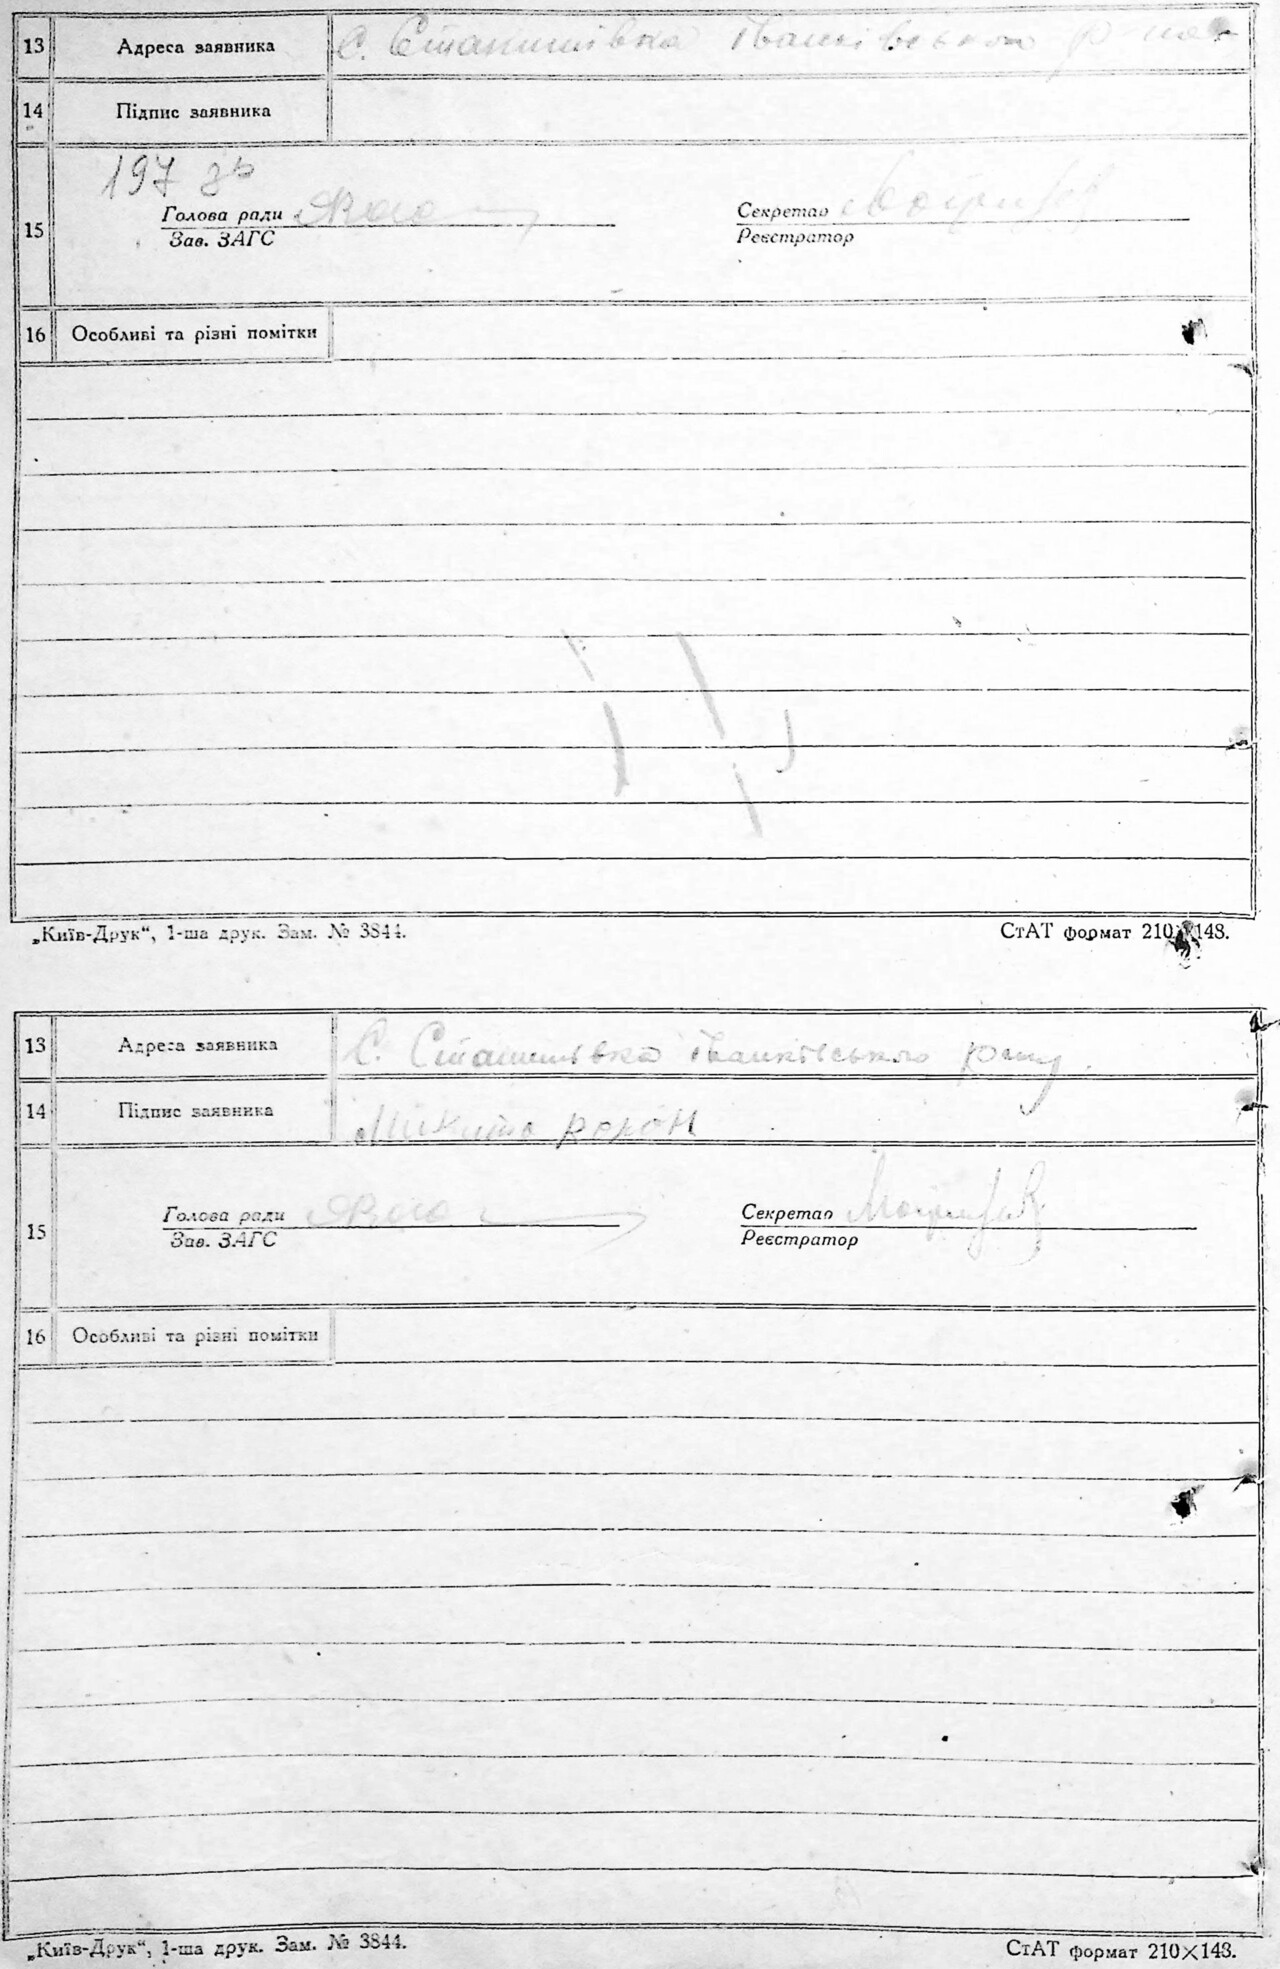 13 Адреса заявника С. Станишівка Іванківського р-ну
14 Підпис заявника
197 зв
15 Голова ради Секретар
Зав. ЗАГС Реєстратор
16 Особливі та різні помітки
„Київ-Друк“, 1-ша друк. Зам. № 3844. СтАТ формат 210×148.
13 Адреса заявника С. Станишівка Іванківського р-ну
14 Підпис заявника Микита
15 Голова ради Секретар
Зав. ЗАГС Реєстратор
16 Особливі та різні помітки
„Київ-Друк“, 1-ша друк. Зам. № 3844. СтАТ формат 210×148.